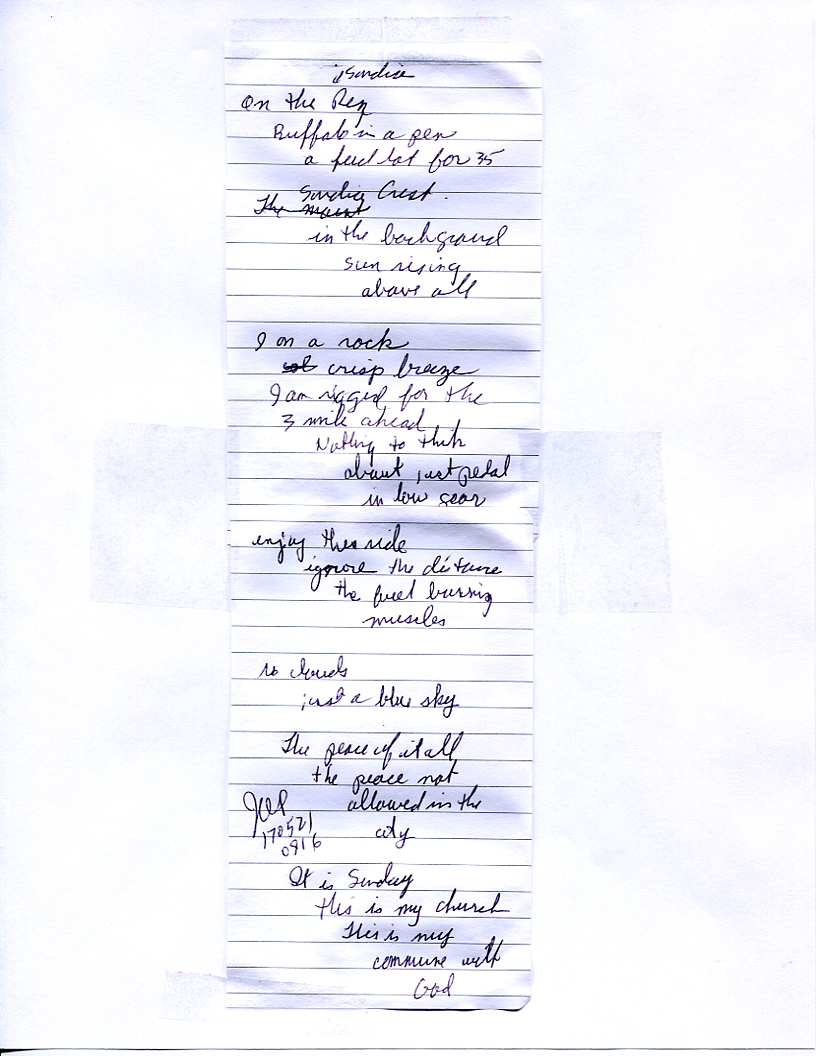 Sandia
On the Rez
Buffalo in a pen
a feed lot for 35
Sandia Crest.
The mount
in the background
sun rising
above all
I on a rock
crisp breeze
I am rigged for the
3 mile ahead
Nothing to think
about just pedal
in low gear
enjoy the ride
ignore the distance
the fuel burning
muscles
no clouds
just a blue sky
The peace of it all
the peace not
allowed in the
city
170521
0916
It is Sunday
this is my church
This is my
commune with
God